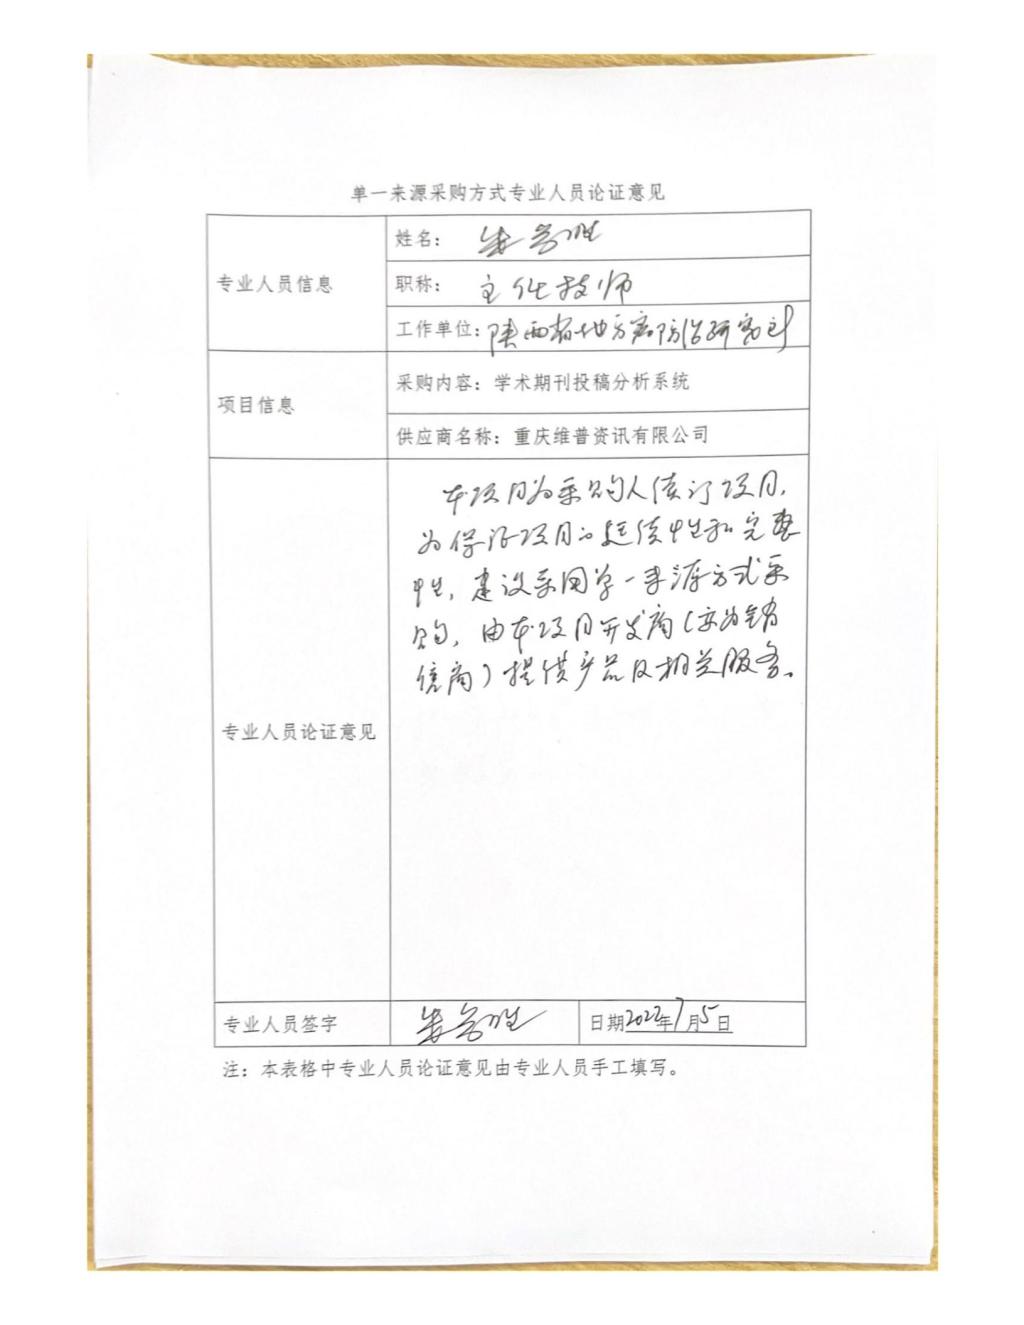 单一来源采购方式专业人员论证意见
专业人员信息
姓名：
职称：主任技师
工作单位：陕西省地方病防治研究所
项目信息
采购内容：学术期刊投稿分析系统
供应商名称：重庆维普资讯有限公司
专业人员论证意见
本项目为采购人续订项目，
为保证项目的延续性和完整
性，建议采用单一来源方式采
购，由本项目开发商（亦为销
售商）提供产品及相关服务。
专业人员签字
日期2022年7月5日
注：本表格中专业人员论证意见由专业人员手工填写。